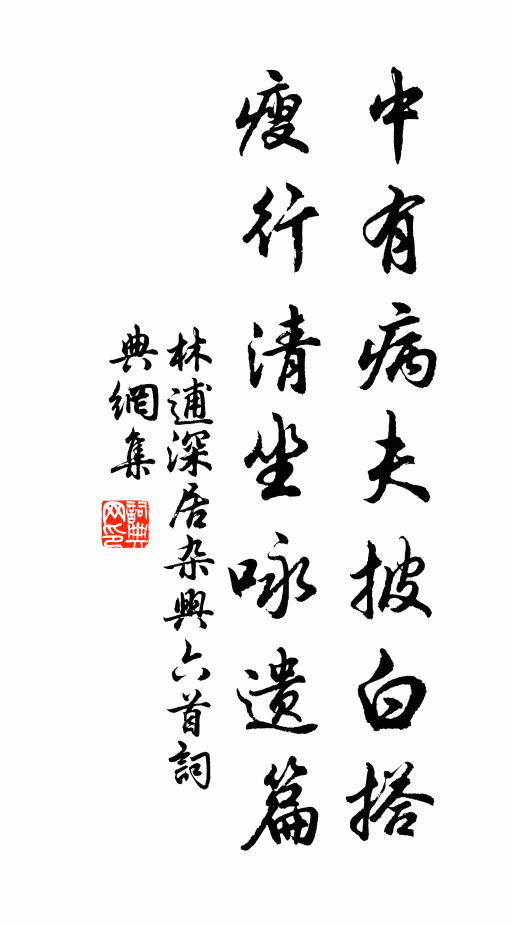 中有病夫披白搭
瘦行清坐咏遗篇
林逋深居杂興六首詞
典網集
詞典网印